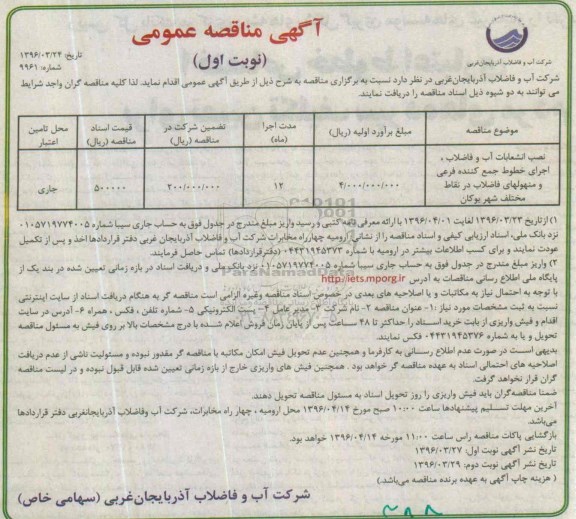 آگهی مناقصه عمومی
(نوبت اول)
تاریخ: ۱۳۹۶/۰۳/۲۴
شماره: ۹۹۶۱
شرکت آب و فاضلاب آذربایجان‌غربی
شرکت آب و فاضلاب آذربایجان‌غربی در نظر دارد نسبت به برگزاری مناقصه به شرح ذیل از طریق آگهی عمومی اقدام نماید. لذا کلیه مناقصه گران واجد شرایط
می توانند به دو شیوه ذیل اسناد مناقصه را دریافت نمایند.
موضوع مناقصه | مبلغ برآورد اولیه (ریال) | مدت اجرا (ماه) | تضمین شرکت در مناقصه (ریال) | قیمت اسناد مناقصه (ریال) | محل تامین اعتبار
نصب انشعابات آب و فاضلاب ، اجرای خطوط جمع کننده فرعی و منهولهای فاضلاب در نقاط مختلف شهر بوکان | ۴/۰۰۰/۰۰۰/۰۰۰ | ۱۲ | ۲۰۰/۰۰۰/۰۰۰ | ۵۰۰۰۰۰ | جاری
۱) از تاریخ ۱۳۹۶/۰۳/۲۳ لغایت ۱۳۹۶/۰۴/۰۱ با ارائه معرفی نامه کتبی و رسید واریز مبلغ مندرج در جدول فوق به حساب جاری سیبا شماره ۰۱۰۵۷۱۹۷۷۴۰۰۵
نزد بانک ملی، اسناد ارزیابی کیفی و اسناد مناقصه را از نشانی: ارومیه چهارراه مخابرات شرکت آب و فاضلاب آذربایجان غربی دفتر قراردادها اخذ و پس از تکمیل
عودت نمایند و برای کسب اطلاعات بیشتر در ارومیه با شماره ۰۴۴۳۱۹۴۵۳۷۳ (دفترقراردادها) تماس حاصل فرمایند.
۲) واریز مبلغ مندرج در جدول فوق به حساب جاری سیبا شماره ۰۱۰۵۷۱۹۷۷۴۰۰۵ نزد بانک‌ملی و دریافت اسناد در بازه زمانی تعیین شده در بند یک از
پایگاه ملی اطلاع رسانی مناقصات به آدرس http://iets.mporg.ir
با توجه به احتمال نیاز به مکاتبات و یا اصلاحیه های بعدی در خصوص اسناد مناقصه وغیره الزامی است مناقصه گر به هنگام دریافت اسناد از سایت اینترنتی
نسبت به ثبت مشخصات مورد نیاز :۱- عنوان مناقصه ۲- نام شرکت ۳- مدیرعامل ۴- پست الکترونیکی ۵- شماره تلفن ، فکس ، همراه ۶- آدرس در سایت
اقدام و فیش واریزی از بابت خرید اسناد را حداکثر تا ۴۸ ساعت پس از پایان زمان فروش اعلام شده با درج مشخصات بالا بر روی فیش به مسئول مناقصه
تحویل و یا به شماره ۰۴۴۳۱۹۴۵۳۷۶ فکس نمایند.
بدیهی است در صورت عدم اطلاع رسانی به کارفرما و همچنین عدم تحویل فیش امکان مکاتبه با مناقصه گر مقدور نبوده و مسئولیت ناشی از عدم دریافت
اصلاحیه های احتمالی اسناد به عهده مناقصه گر خواهد بود . همچنین فیش های واریزی خارج از بازه زمانی تعیین شده قابل قبول نبوده و در لیست مناقصه
گران قرار نخواهد گرفت.
ضمنا مناقصه‌گران باید فیش واریزی را روز تحویل اسناد به مسئول مناقصه تحویل دهند.
آخرین مهلت تسلیم پیشنهادها ساعت ۱۰:۰۰ صبح مورخ ۱۳۹۶/۰۴/۱۴ محل ارومیه ، چهار راه مخابرات، شرکت آب وفاضلاب آذربایجانغربی دفتر قراردادها
می‌باشد.
بازگشایی پاکات مناقصه راس ساعت ۱۱:۰۰ مورخه ۱۳۹۶/۰۴/۱۴ خواهد بود.
تاریخ نشر آگهی نوبت اول: ۱۳۹۶/۰۳/۲۷
تاریخ نشر آگهی نوبت دوم: ۱۳۹۶/۰۳/۲۹
( هزینه چاپ آگهی به عهده برنده مناقصه می‌باشد.)
شرکت آب و فاضلاب آذربایجان‌غربی (سهامی خاص)